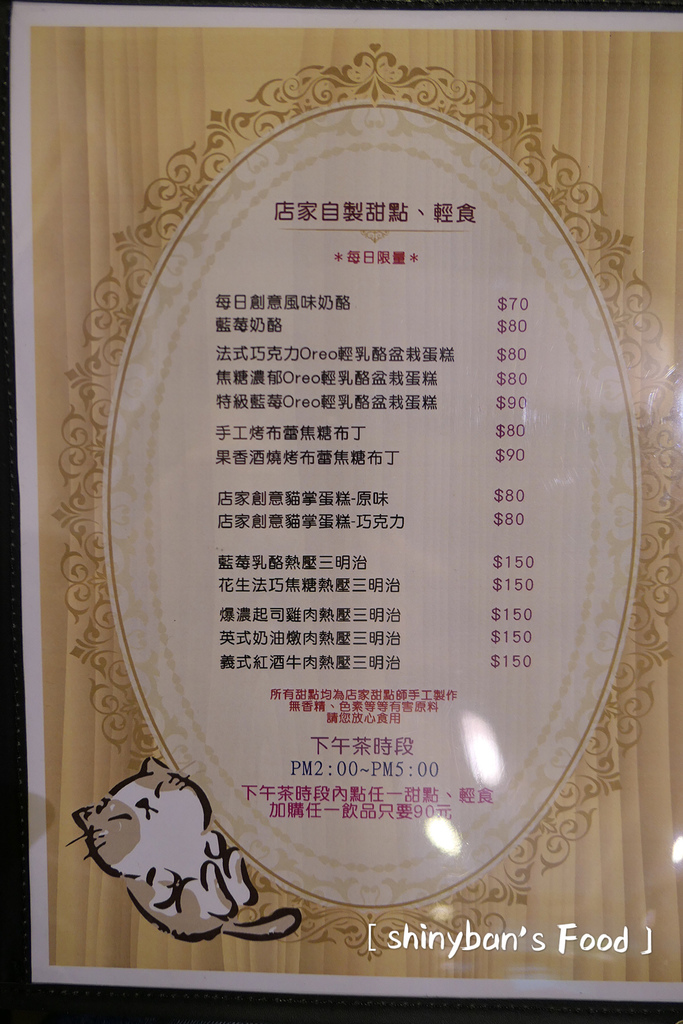 店家自製甜點、輕食
＊每日限量＊
每日創意風味奶酪 $70
藍莓奶酪 $80
法式巧克力Oreo輕乳酪盆栽蛋糕 $80
焦糖濃郁Oreo輕乳酪盆栽蛋糕 $80
特級藍莓Oreo輕乳酪盆栽蛋糕 $90
手工烤布蕾焦糖布丁 $80
果香酒燒烤布蕾焦糖布丁 $90
店家創意貓掌蛋糕-原味 $80
店家創意貓掌蛋糕-巧克力 $80
藍莓乳酪熱壓三明治 $150
花生法巧焦糖熱壓三明治 $150
爆濃起司雞肉熱壓三明治 $150
英式奶油燉肉熱壓三明治 $150
義式紅酒牛肉熱壓三明治 $150
所有甜點均為店家甜點師手工製作
無香精、色素等等有害原料
請您放心食用
下午茶時段
PM2:00~PM5:00
下午茶時段內點任一甜點、輕食
加購任一飲品只要90元
[ shinyban's Food ]